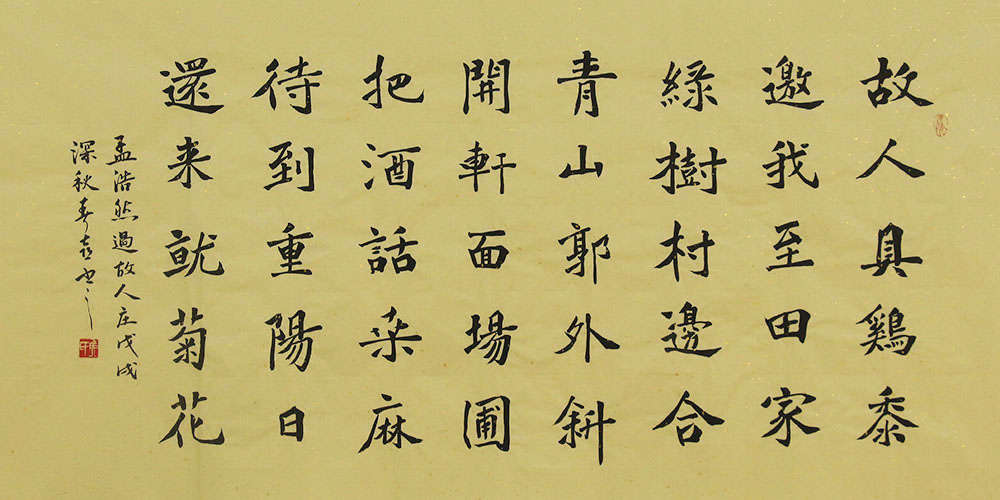 故人具鷄黍
邀我至田家
綠樹村邊合
青山郭外斜
開軒面場圃
把酒話桑麻
待到重陽日
還来就菊花
孟浩然過故人庄戊戌
深秋